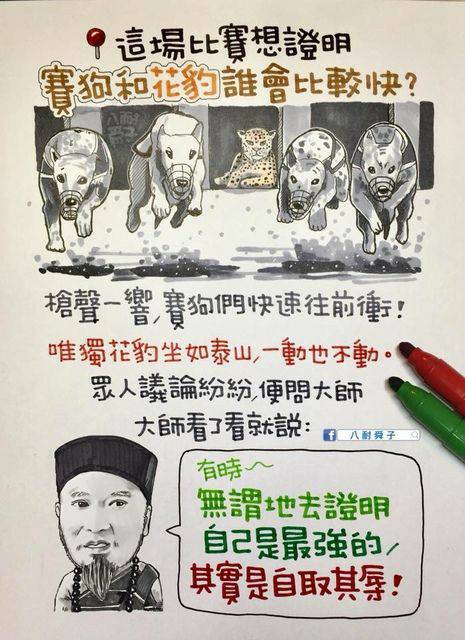 這場比賽想證明
賽狗和花豹誰會比較快?
八耐
舜子
槍聲一響,賽狗們快速往前衝!
唯獨花豹坐如泰山,一動也不動。
眾人議論紛紛,便問大師
大師看了看就說:
f 八耐舜子
有時~
無謂地去證明
自己是最強的,
其實是自取其辱!